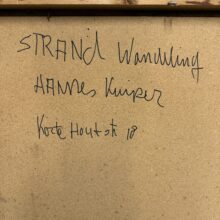 STRANd Wandeling
HANNES Kuiper
Korte Houtstr 18